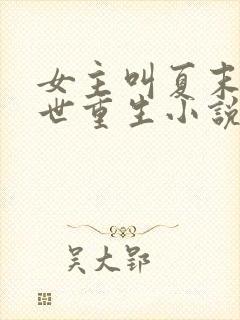 女主叫夏末
世重生小説
吴大郢